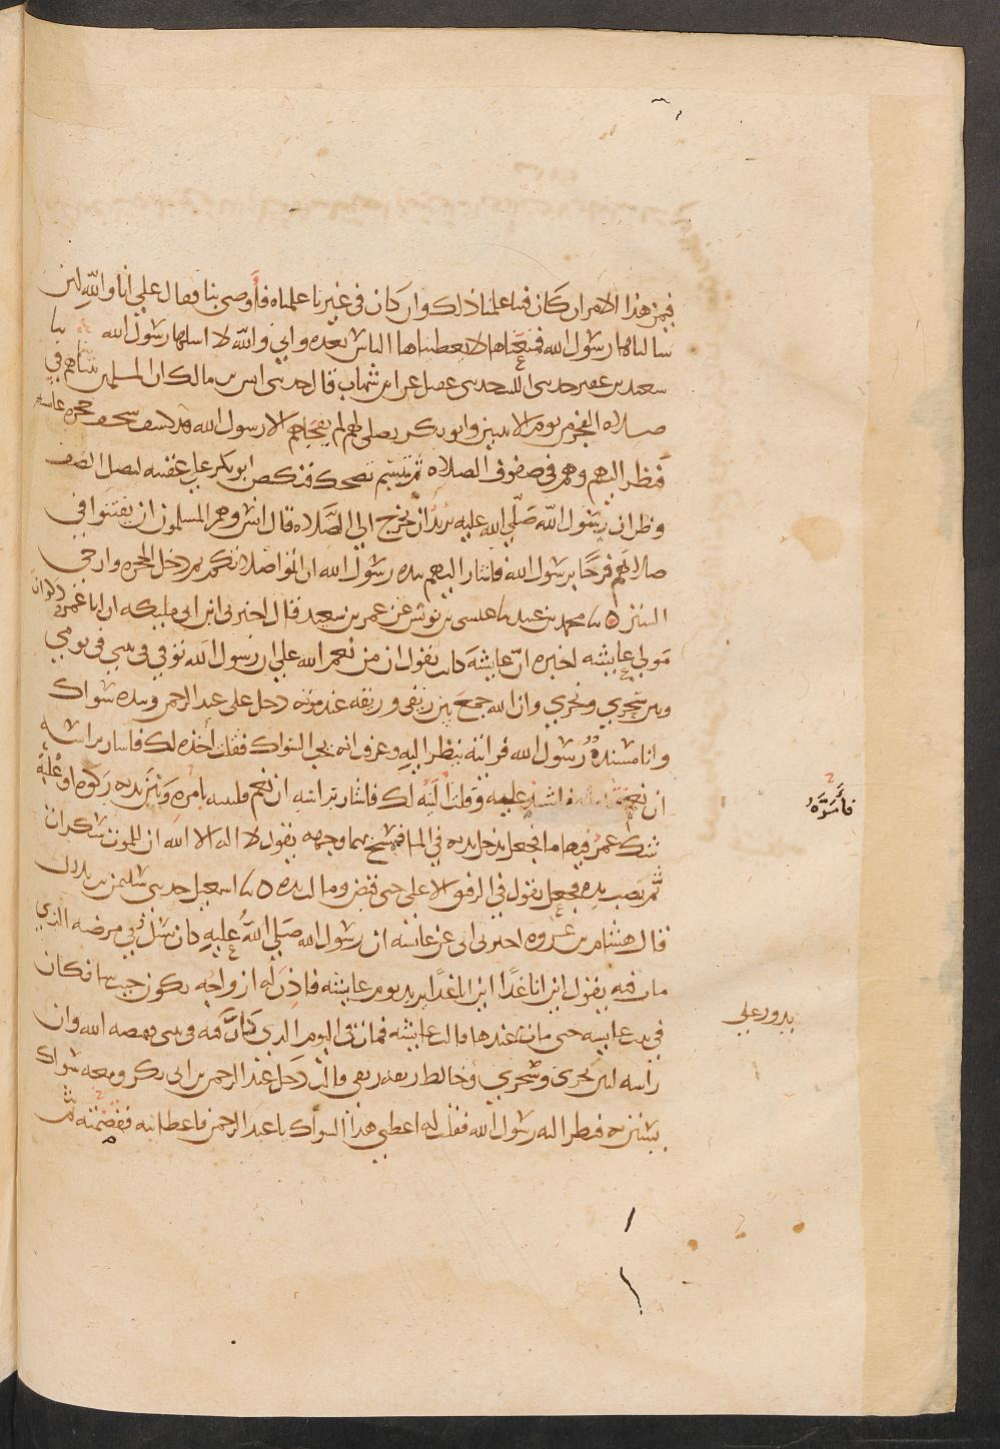 فيمن هذا الامر ان كان فينا علمنا ذلك وان كان في غيرنا علمناه فأوصى بنا فقال علي انا والله لئن
سالناها رسول الله فمنعناها لا يعطيناها الناس بعده واني والله لا اسلها رسول الله نا
سعيد بن عفير حدثني الليث حدثني عقيل عن ابن شهاب قال حدثني انس بن مالك ان المسلمين بيناهم في
صلاه الفجر من يوم الاثنين وابو بكر يصلي لهم لم يفجاهم الا رسول الله قد كشف سجف حجره عائشه
فنظر اليهم وهم في صفوف الصلاه ثم تبسم يضحك فنكص ابو بكر على عقبيه ليصل الصف
وظن ان رسول الله صلى الله عليه يريد ان يخرج الي الصلاه قال انس وهم المسلمون ان يفتتنوا في
صلاتهم فرحًا برسول الله فاشار اليهم بيده رسول الله ان اتموا صلاتكم ثم دخل الحجره وارخى
الستر ه نا محمد بن عبيد نا عيسى بن يونس عن عمر بن سعيد قال اخبرني ابن ابي مليكه ان ابا عمرو ذكوان
مولى عايشه اخبره ان عايشه كانت تقول ان من نعم الله علي ان رسول الله توفي في بيتي وفي يومي
وبين سحري ونحري وان الله جمع بين ريقي وريقه عند موته دخل علي عبد الرحمن وبيده سواك
وانا مسنده رسول الله فرايته ينظر اليه وعرفت انه يحب السواك فقلت اخذه لك فاشار براسه
ان نعم فاشتد عليه وقلت الينه لك فاشار براسه ان نعم فلينته بامره وبين يديه ركوه او علبه
شك عمر فيها ما فجعل يدخل يديه في الما فيمسح بهما وجهه يقول لا اله الا الله ان للموت سكرات
ثم نصب يده فجعل يقول في الرفيق الاعلى حتى قبض ومالت يده ه نا اسمعيل حدثني سليمن بن بلال
قال هشام بن عروه اخبرني ابي عن عائشه ان رسول الله صلي الله عليه كان يسل في مرضه الذي
مات فيه يقول اين انا غدًا اين انا غدًا يريد يوم عايشه فاذن له ازواجه يكون حيث شا فكان
في بيت عايشه حتى مات عندها قالت عايشه فمات في اليوم الذي كان فيه في بيتي فقبضه الله وان
راسه لبين نحري وسحري وخالط ريقه ريقي قالت دخل عبد الرحمن بن ابي بكر ومعه سواك
يستن به فنظر اليه رسول الله فقلت له اعطني هذا السواك يا عبد الرحمن فاعطانيه فقضمته ثم
فأمرّه
يدور علي